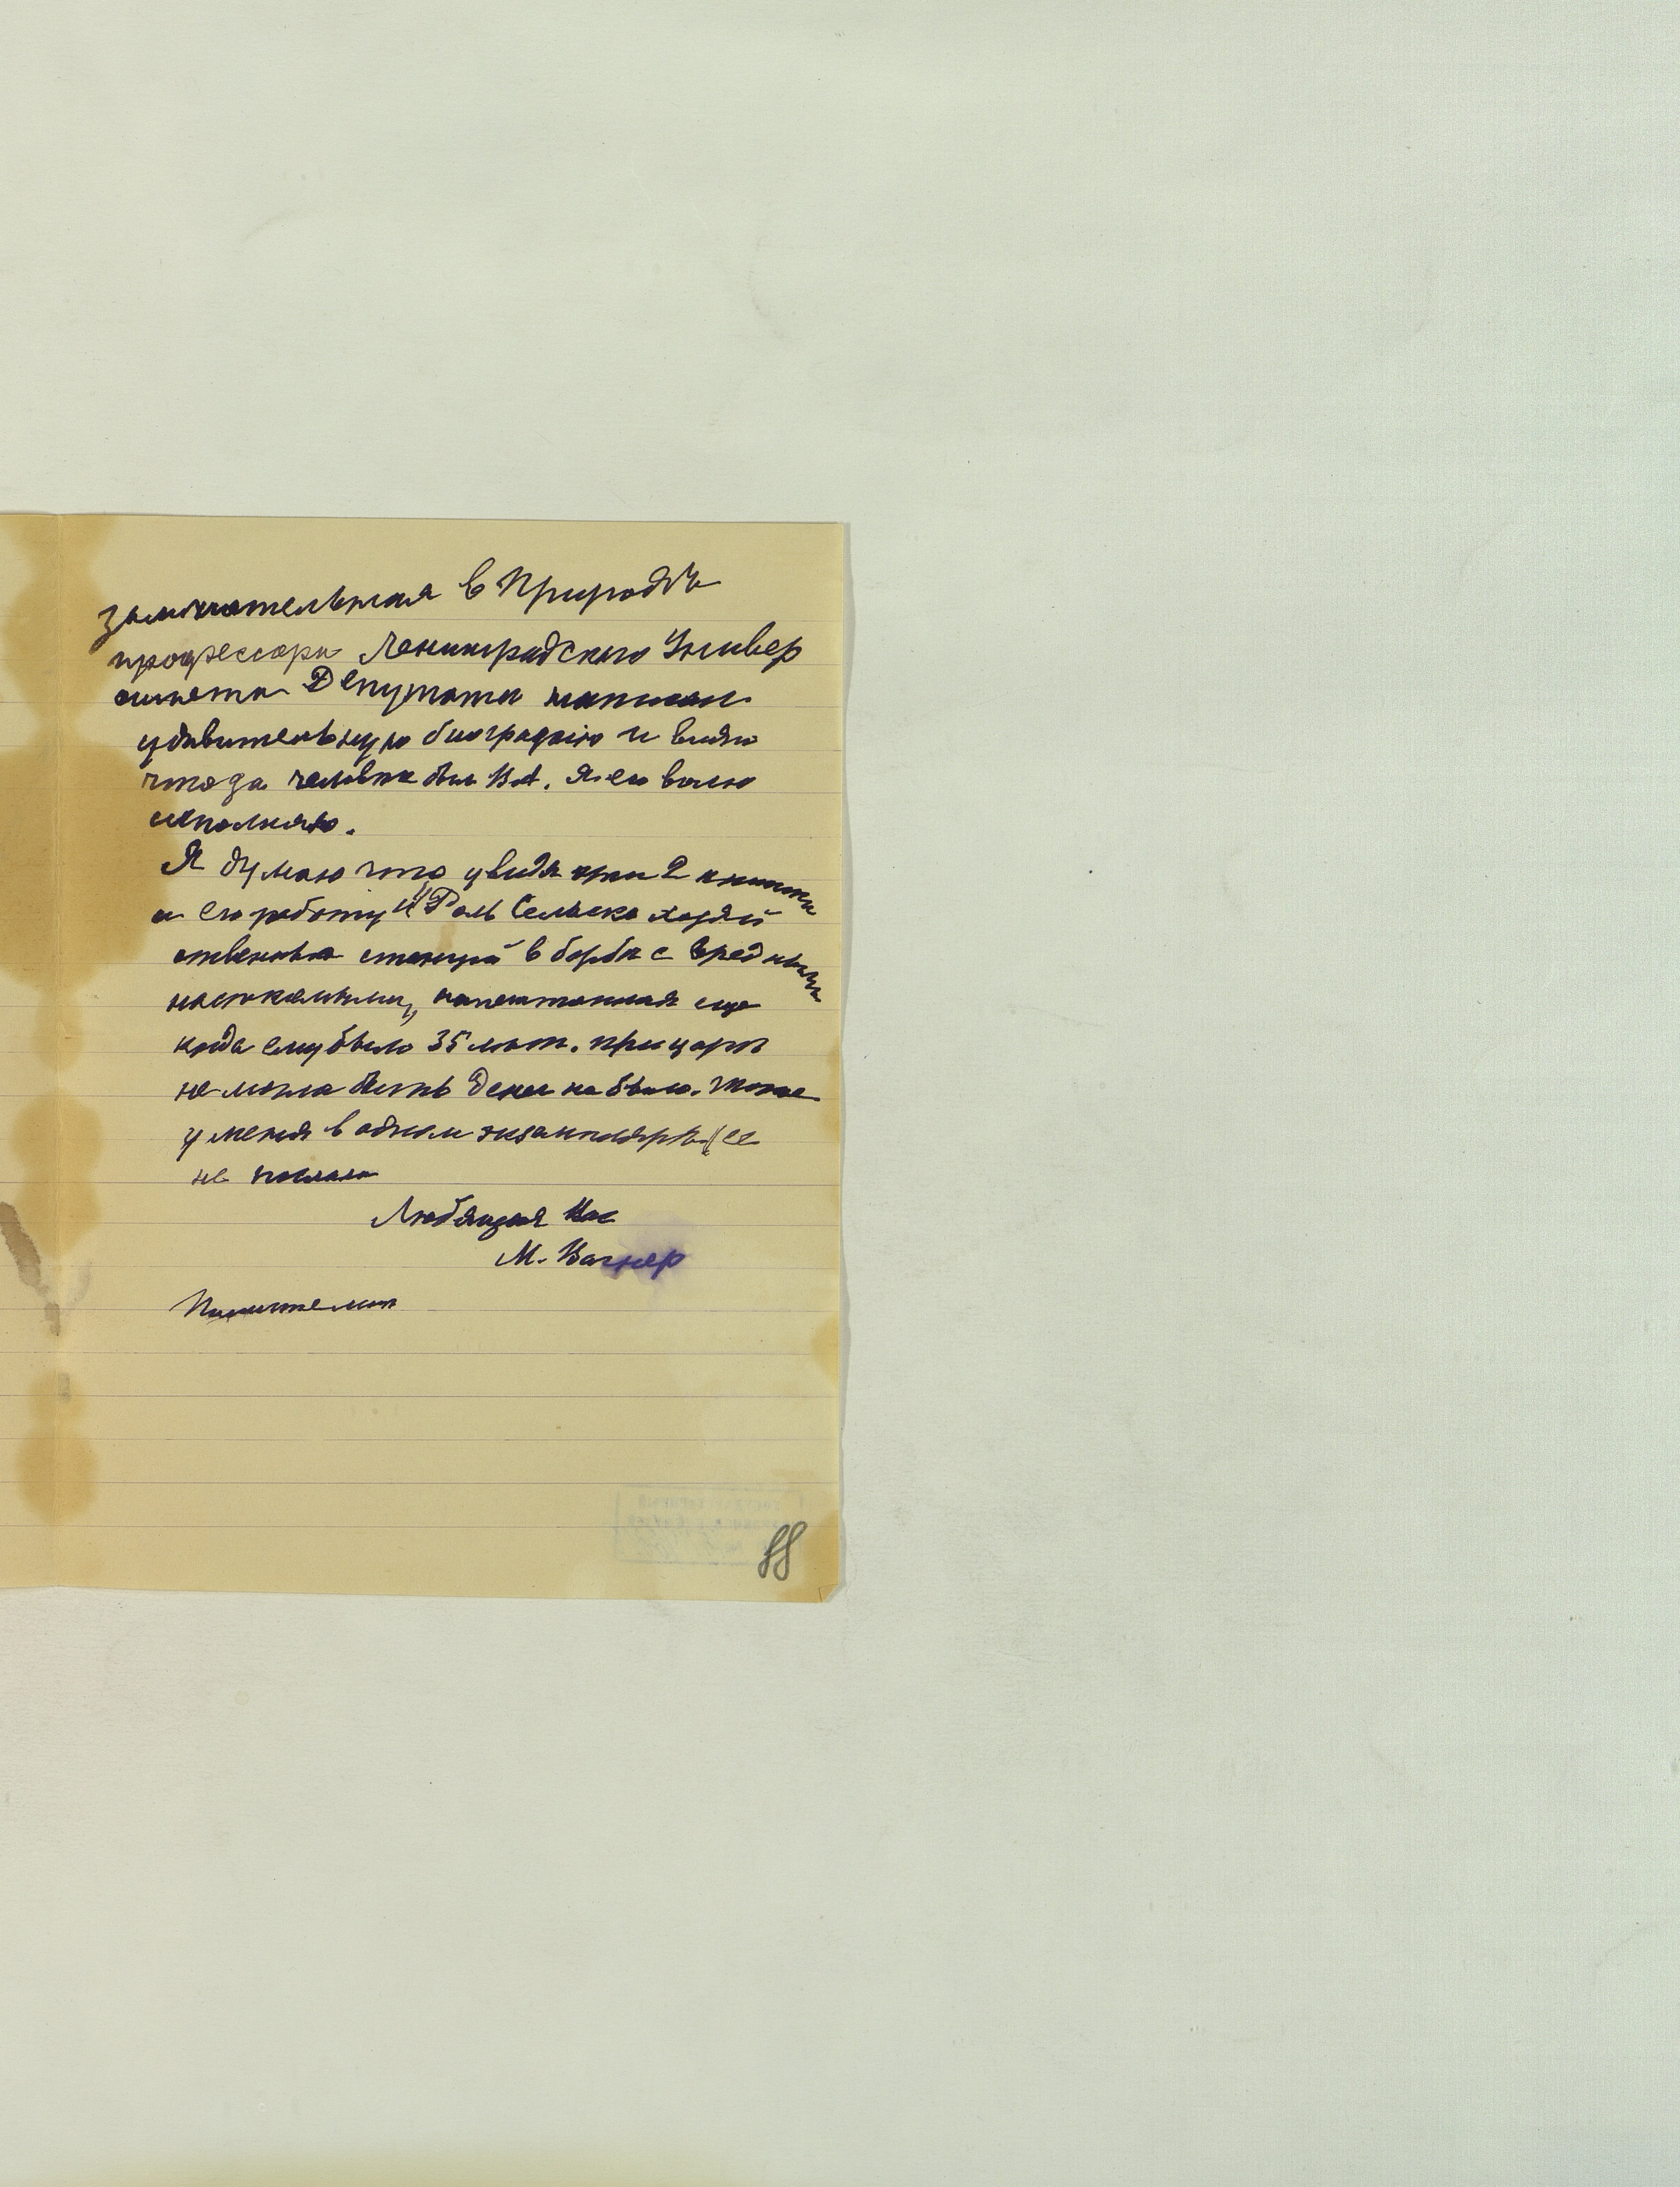 замечательная в Природѣ
профессора Ленинградского Универ
ситета Депутата написал
удивительную биографию и видно
что за человек был В.А. Я его волю
исполняю.
Я думаю что увидя эти 2 книжки
и его работу "Роль Сельско хозяй
ственных станций в борьбе с вредными
насекомыми", напечатанная еще
когда ему было 35 лѣт. при царѣ
не могла быть денег не было. тоже
у меня в одном экземплярѣ ее
не послала
Любящая Вас
М. Вагнер
88